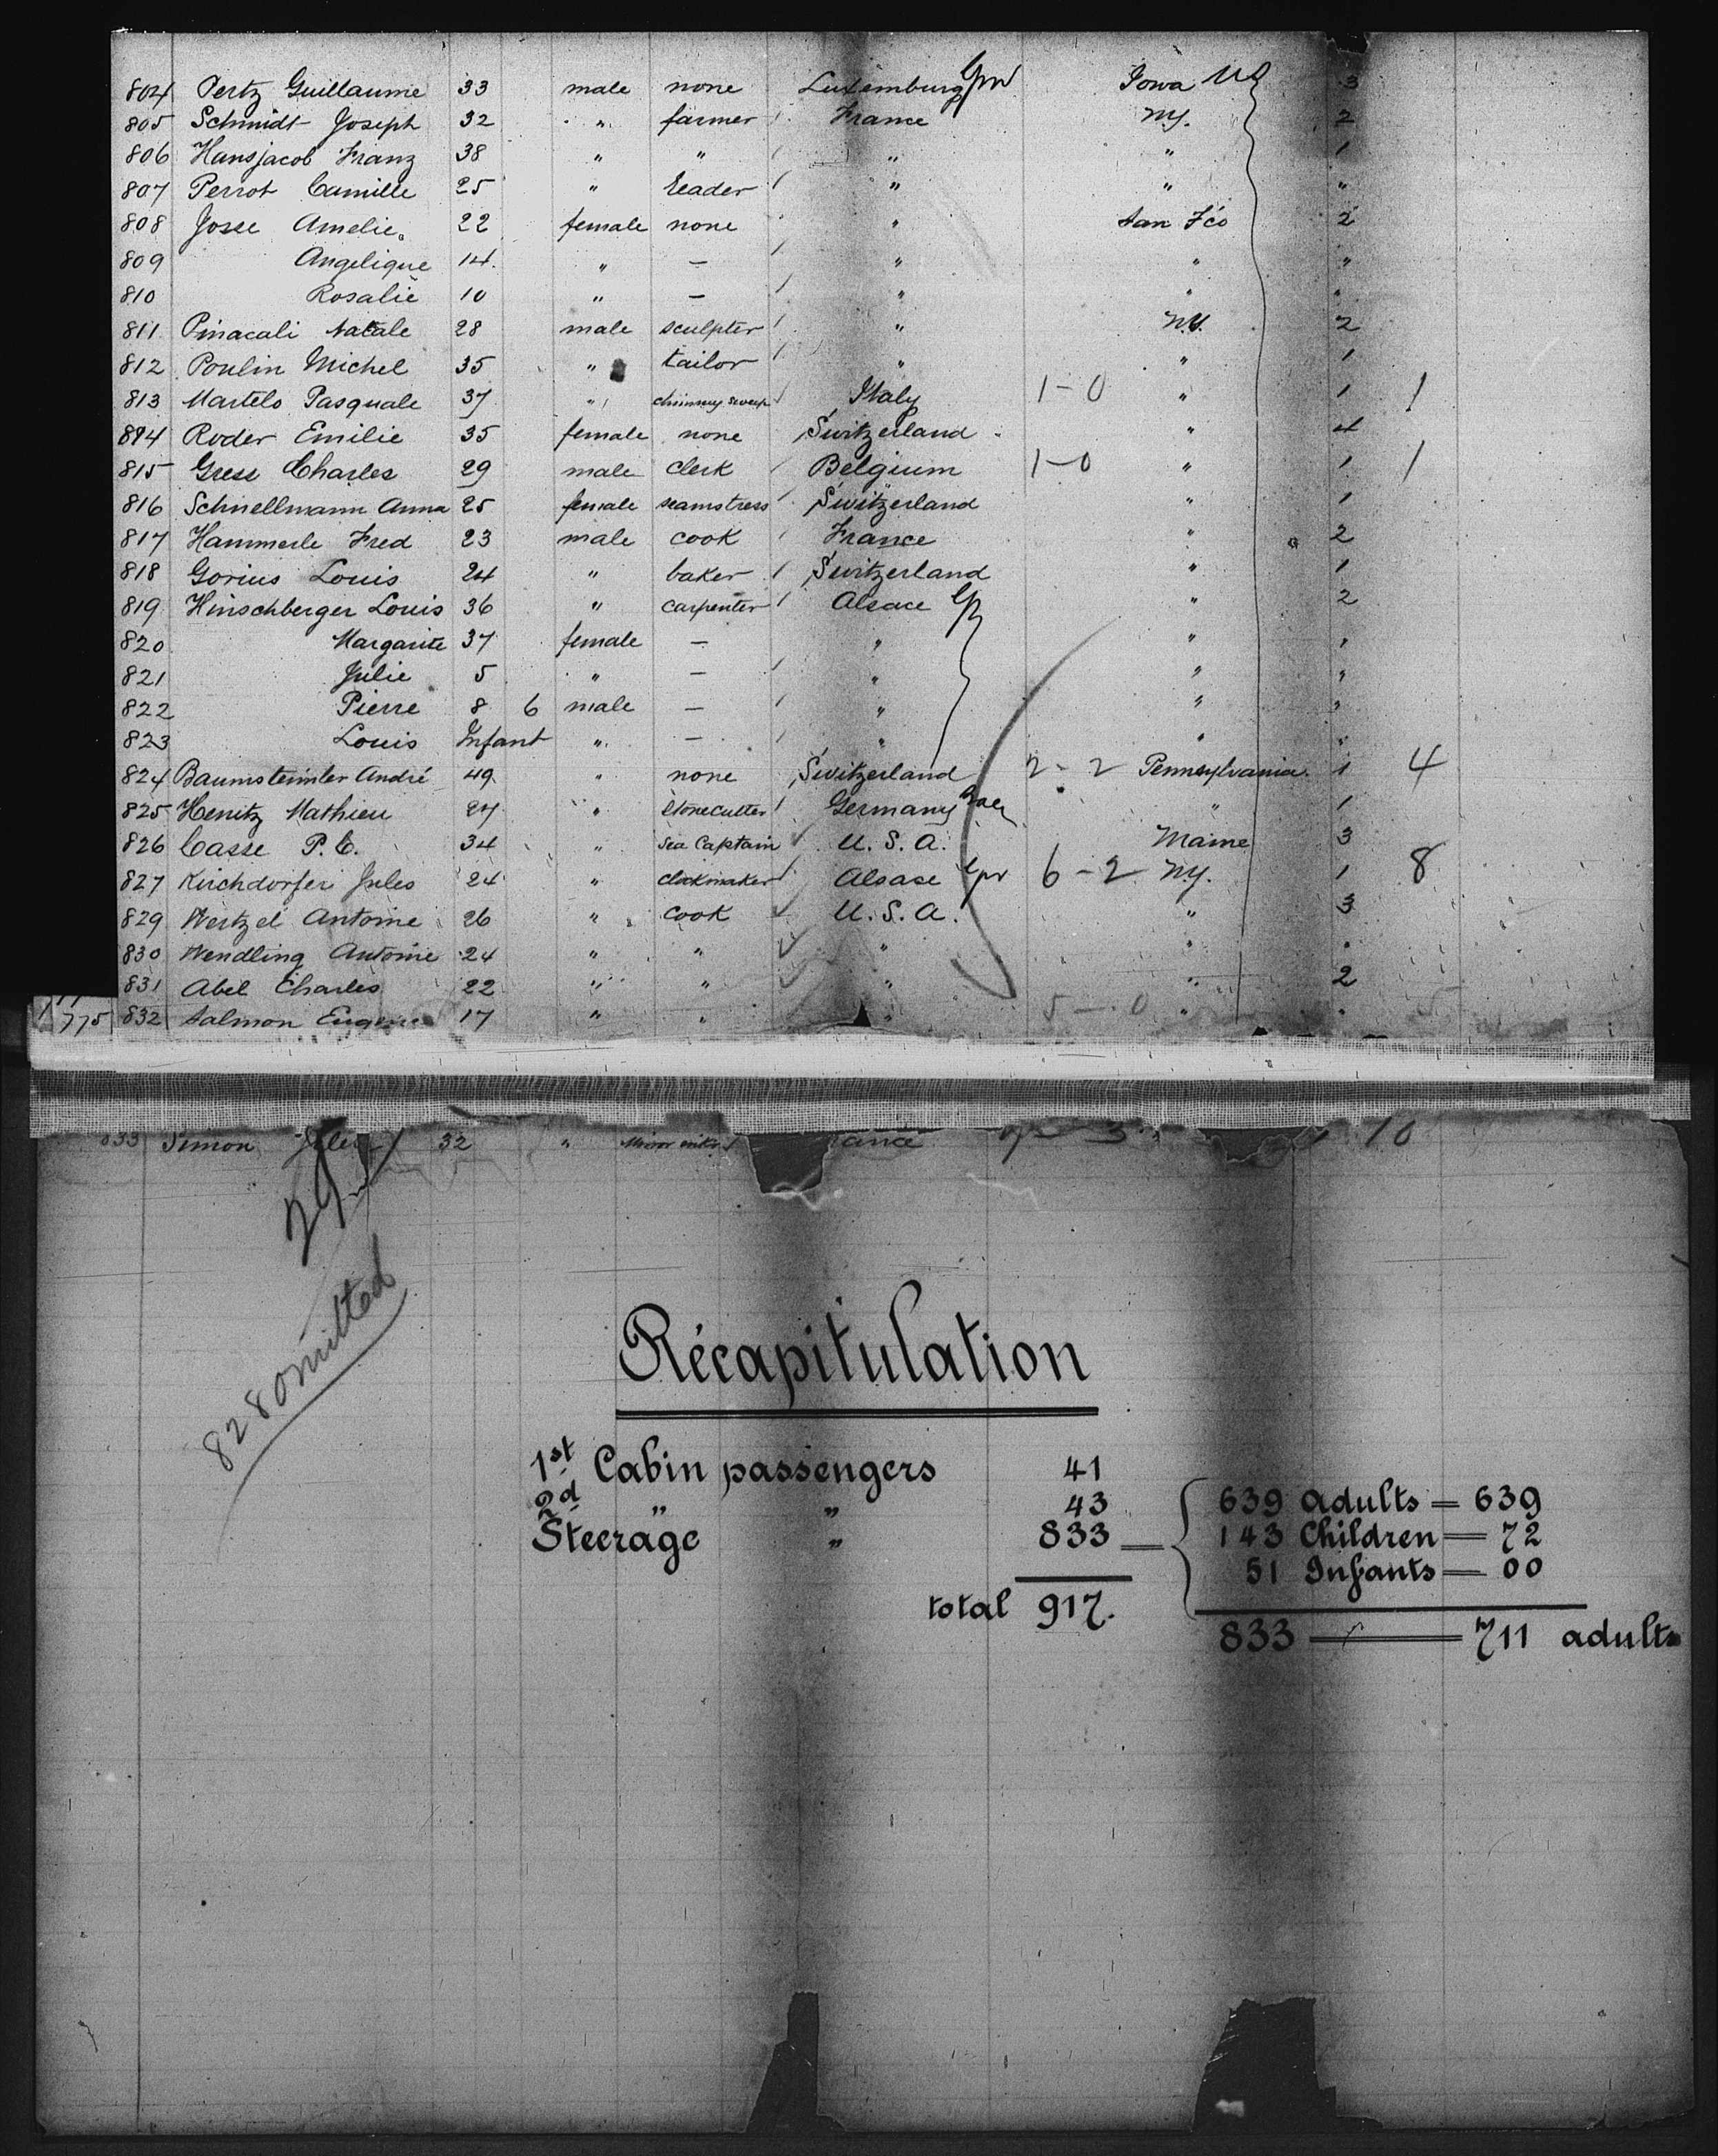 804 Pertz Guillaume 33 male none Luxemburg Iowa 3
805 Schmidt Joseph 32 " farmer France N.Y. 2
806 Hansjacob Franz 38 " " " " 1
807 Perrot Camille 25 " " " "
808 Josse Amelie 22 female none " San Fco 2
809 Angelique 14 " — " " "
810 Rosalie 10 " — " " "
811 Pinacali Natale 28 male sculpter " N.Y. 2
812 Poulin Michel 35 " tailor " " 1
813 Martelo Pasquale 37 " chimney sweep Italy 1-0 " 1 1
814 Roder Emilie 35 female none Switzerland " 4
815 Gress Charles 29 male clerk Belgium 1-0 " 1 1
816 Schnellmann Anna 25 female seamstress Switzerland " 1
817 Hammerle Fred 23 male cook France " 2
818 Gorius Louis 24 " baker Switzerland " 1
819 Hinschberger Louis 36 " carpenter Alsace " 2
820 Margarite 37 female — " " "
821 Julie 5 " — " " "
822 Pierre 8 6 male — " " "
823 Louis Infant " — " " "
824 Baumsteimler André 49 " none Switzerland 2-2 Pennsylvania 1 4
825 Henitz Mathieu 27 " stonecutter Germany " 1
826 Casse P. C. 34 " Sea Captain U. S. A. Maine 3
827 Kirchdorfer Jules 24 " clockmaker Alsace 6-2 N.Y. 1 8
829 Wertzel Antoine 26 " cook U. S. A. " 3
830 Wendling Antoine 24 " " " " "
831 Abel Charles 22 " " " " 2
775 832 Salmon Eugene 17 " " " 5-0 " " 5
833 Simon Jules 32 " 3 10
29
828 omitted
Récapitulation
1st Cabin passengers 41
2d " " 43
Steerage " 833 —
total 917.
639 adults = 639
143 Children — 72
51 Infants — 00
833 — 711 adults